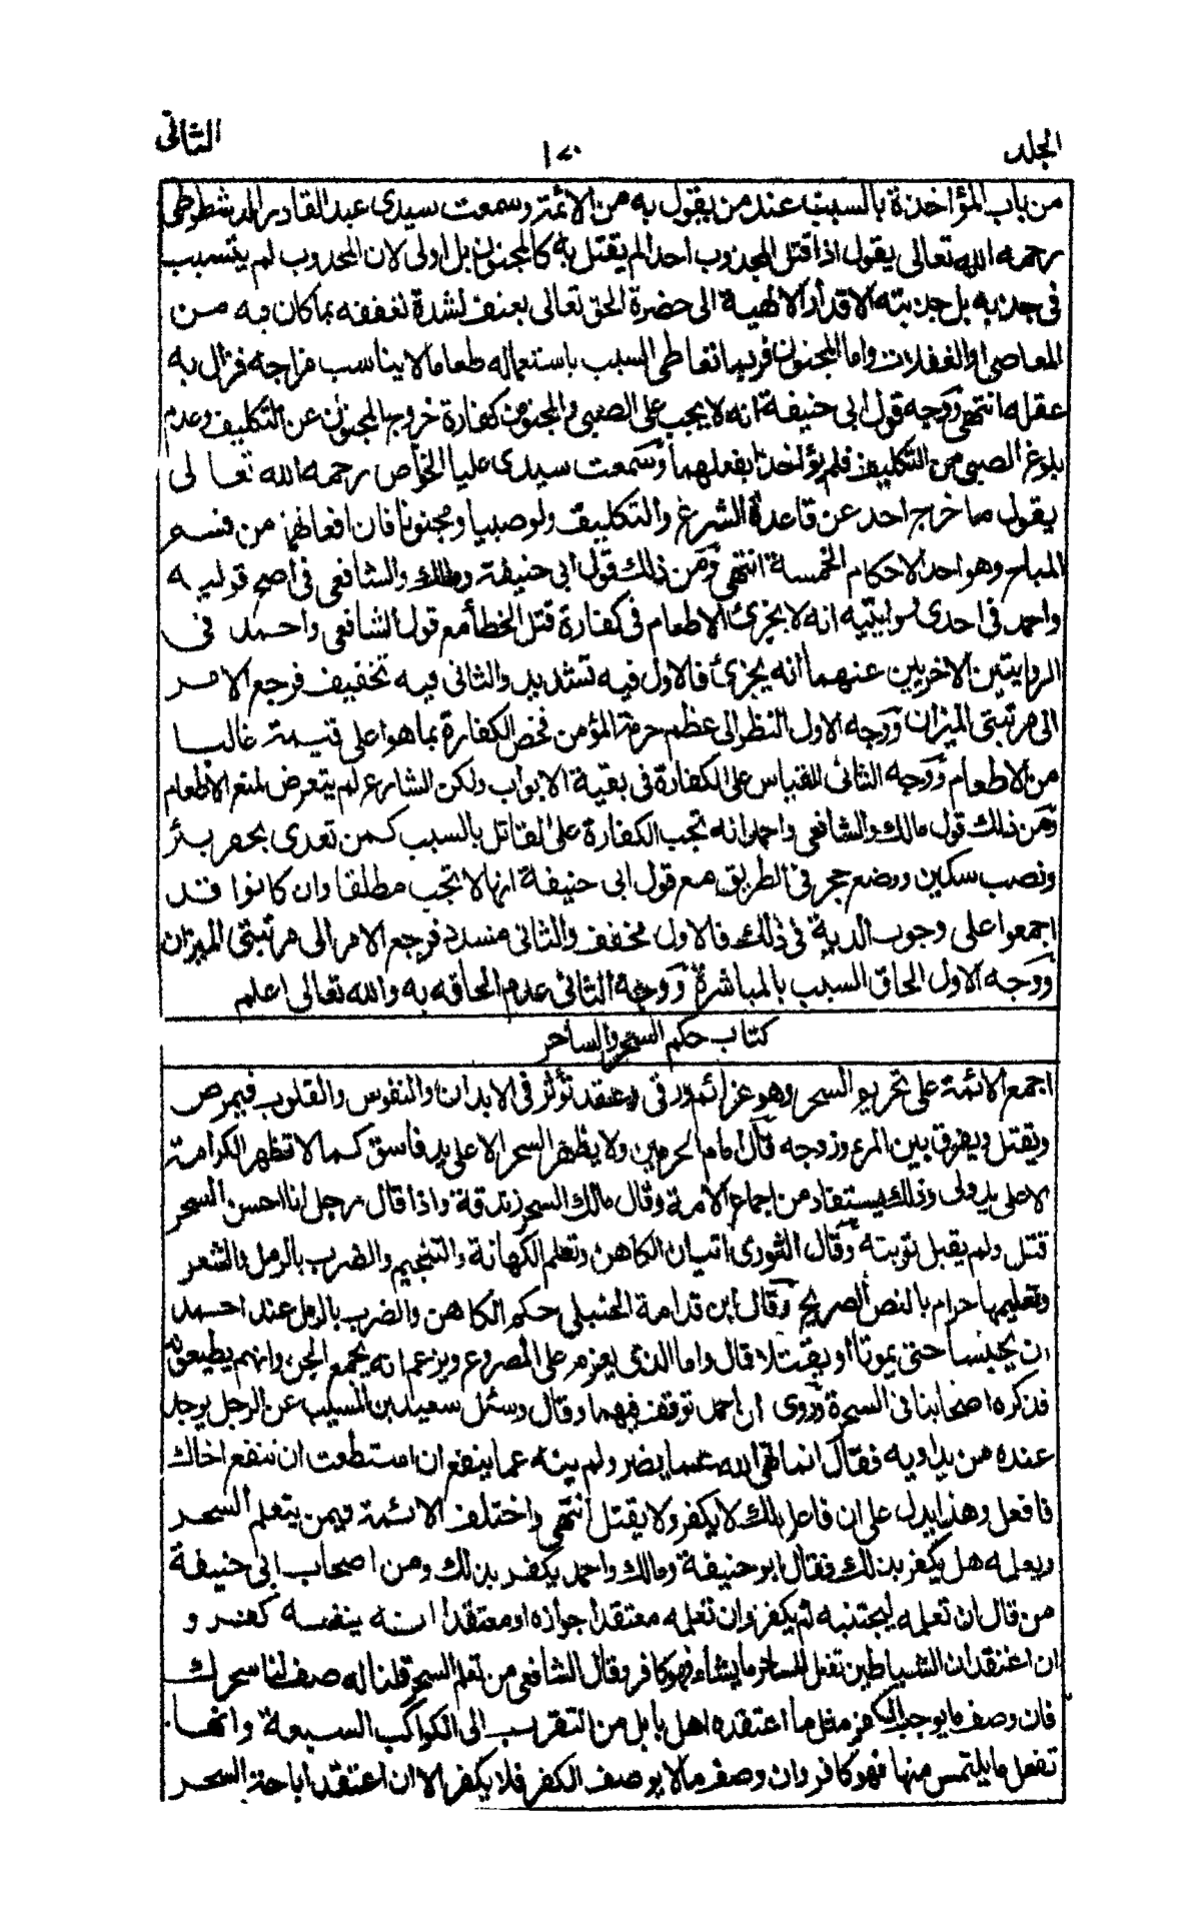 الجلد
١٧٠
الثانى
من باب المؤاخذة بالسبب عند من يقول به من الائمة وسمعت سيدى عبد القادر الدشطوطى
رحمه الله تعالى يقول اذا قتل المجذوب احدا لم يقتل به كالمجنون بل اولى لان المجذوب لم يتسبب
فى جذبه بل جذبته الاقدار الالهية الى حضرة الحق تعالى بعنف لشدة تعففه بما كان فيه من
المعاصى او الغفلات واما المجنون فربما تعاطى السبب باستعماله طعاما لا يناسب مزاجه فزال به
عقله انتهى ووجه قول ابى حنيفة انه لا يجب على الصبى والمجنون كفارة خروج المجنون عن التكليف وعدم
بلوغ الصبى من التكليف فلم يؤاخذا بفعلهما وسمعت سيدى عليا الخواص رحمه الله تعالى
يقول ما خرج احد عن قاعدة الشرع والتكليف ولو صبيا ومجنونا فان افعالهما من قسم
المباح وهو احد الاحكام الخمسة انتهى ومن ذلك قول ابى حنيفة ومالك والشافعى فى اصح قوليه
واحمد فى احدى روايتيه انه لا يجزئ الاطعام فى كفارة قتل الخطأ مع قول الشافعى واحمد فى
الروايتين الاخريين عنهما انه يجزئ فالاول فيه تشديد والثانى فيه تخفيف فرجع الامر
الى مرتبتى الميزان ووجه الاول النظر الى عظم حرمة المؤمن فخص الكفارة بما هو اعلى قيمة غالبا
من الاطعام ووجه الثانى القياس على الكفارة فى بقية الابواب ولكن الشارع لم يتعرض لمنع الاطعام
ومن ذلك قول مالك والشافعى واحمد انه تجب الكفارة على القاتل بالسبب كمن تعدى بحفر بئر
ونصب سكين ووضع حجر فى الطريق مع قول ابى حنيفة انها لا تجب مطلقا وان كانوا قد
اجمعوا على وجوب الدية فى ذلك فالاول مخفف والثانى مشدد فرجع الامر الى مرتبتى الميزان
ووجه الاول الحاق السبب بالمباشرة ووجه الثانى عدم الحاقه به والله تعالى اعلم
كتاب حكم السحر والساحر
اجمع الائمة على تحريم السحر وهو عزائم ورقى وعقد تؤثر فى الابدان والنفوس والقلوب فيمرض
ويقتل ويفرق بين المرء وزوجه قال امام الحرمين ولا يظهر السحر الا على يد فاسق كما لا تظهر الكرامة
الا على يد ولى وذلك يستفاد من اجماع الامة وقال مالك السحر زندقة واذا قال رجل انا احسن السحر
قتل ولم يقبل توبته وقال النووى اتيان الكاهن وتعلم الكهانة والتنجيم والضرب بالرمل والشعر
وتعليمها حرام بالنص الصريح وقال ابن قدامة الحنبلى حكم الكاهن والضرب بالرمل عند احمد
ان يحبسا حتى يموتا او يقتلا قال واما الذى يعزم على المصروع ويزعم انه يجمع الجن وانهم يطيعونه
فذكره اصحابنا فى السحرة وروى ان احمد توقف فيهما وقال وسئل سعيد بن المسيب عن الرجل يوجد
عنده من يداويه فقال انما نهى الله عما يضر ولم ينه عما ينفع ان استطعت ان تنفع اخاك
فافعل وهذا يدل على ان فاعل ذلك لا يكفر ولا يقتل انتهى واختلف الائمة فيمن يتعلم السحر
ويعلمه هل يكفر بذلك فقال ابو حنيفة ومالك واحمد يكفر بذلك ومن اصحاب ابى حنيفة
من قال ان تعلمه ليجتنبه لم يكفر وان تعلمه معتقدا جوازه او معتقدا انه ينفعه كفر و
ان اعتقد ان الشياطين تفعل للساحر ما يشاء فهو كافر وقال الشافعى من تعلم السحر قلنا له صف لنا سحرك
فان وصف ما يوجب الكفر مثل ما اعتقده اهل بابل من التقرب الى الكواكب السبعة وانها
تفعل ما يلتمس منها فهو كافر وان وصف ما لا يوصف الكفر فلا يكفر الا ان اعتقد اباحة السحر